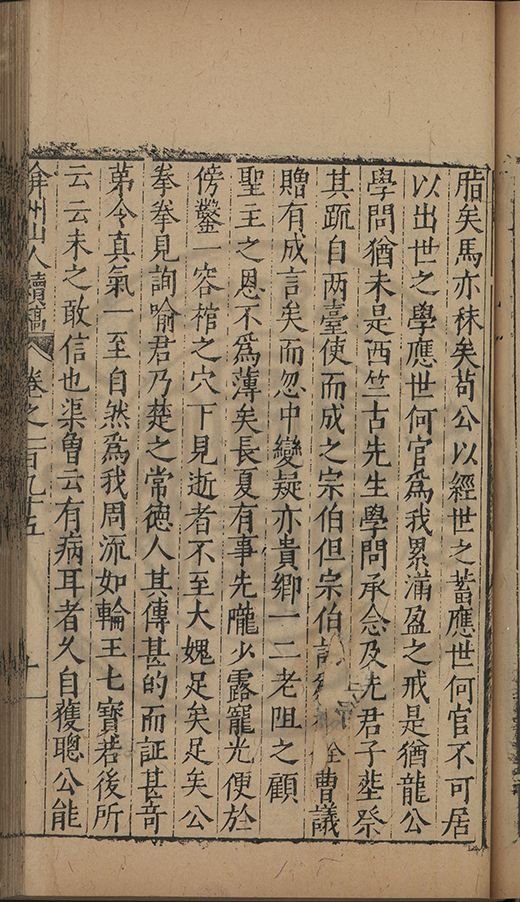 脂矣馬亦秣矣苟公以經世之蓄應世何官不可居
以出世之學應世何官爲我累滿盈之戒是猶龍公
學問猶未是西竺古先生學問承念及先君子塟祭
其疏自两臺使而成之宗伯但宗伯曹議
贈有成言矣而忽中變疑亦貴鄉一二老阻之顧
聖主之恩不爲薄矣長夏有事先隴少露寵光便於
傍鑿一容棺之穴下見逝者不至大媿足矣足矣公
拳拳見詢喻君乃楚之常德人其傳甚的而証甚竒
苐令真氣一至自然爲我周流如輪王七寶若後所
云云未之敢信也渠曾云有病耳者久自獲聰公能
弇州山人續稿 卷之一百九十五 十一